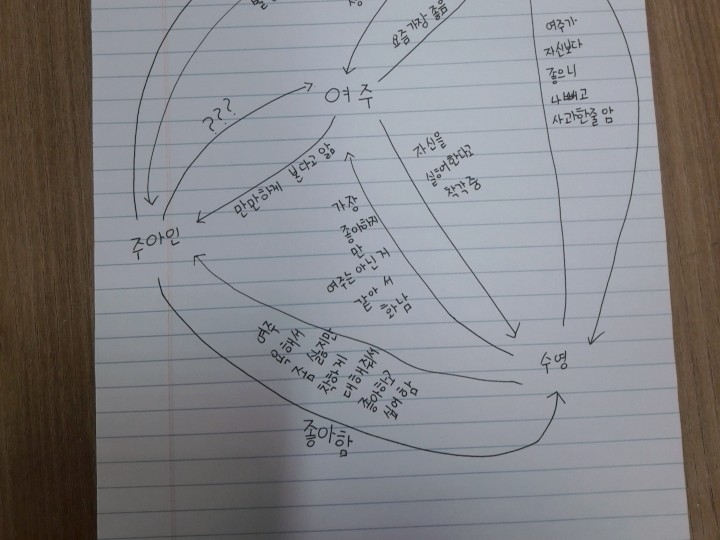 요즘 가장 좋음
여주가
자신보다
좋으니
나빼고
사과한줄 앎
여주
???
만만하게 본다고 앎
자신을
싫어한다고
착각중
가장
좋아하지
만
여주는 아닌 거
같아서
화남
주아인
수영
여주
욕해서
싫지만
착하게
대해줘서
좋아하고
싫어함
좋아함